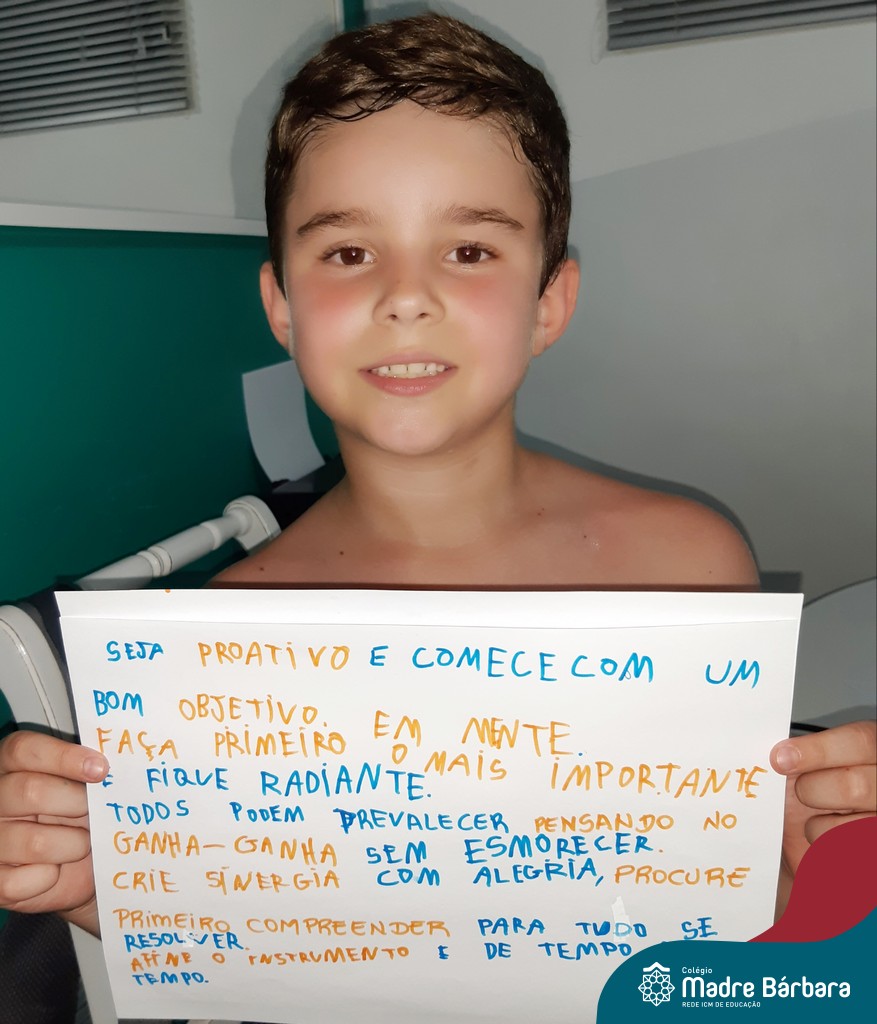 SEJA PROATIVO E COMECE COM UM
BOM OBJETIVO. EM MENTE.
FAÇA PRIMEIRO O MAIS IMPORTANTE
E FIQUE RADIANTE.
TODOS PODEM PREVALECER PENSANDO NO
GANHA-GANHA SEM ESMORECER.
CRIE SINERGIA COM ALEGRIA, PROCURE
PRIMEIRO COMPREENDER PARA TUDO SE
RESOLVER.
AFINE O INSTRUMENTO E DE TEMPO
TEMPO.
Colégio
Madre Bárbara
REDE ICM DE EDUCAÇÃO